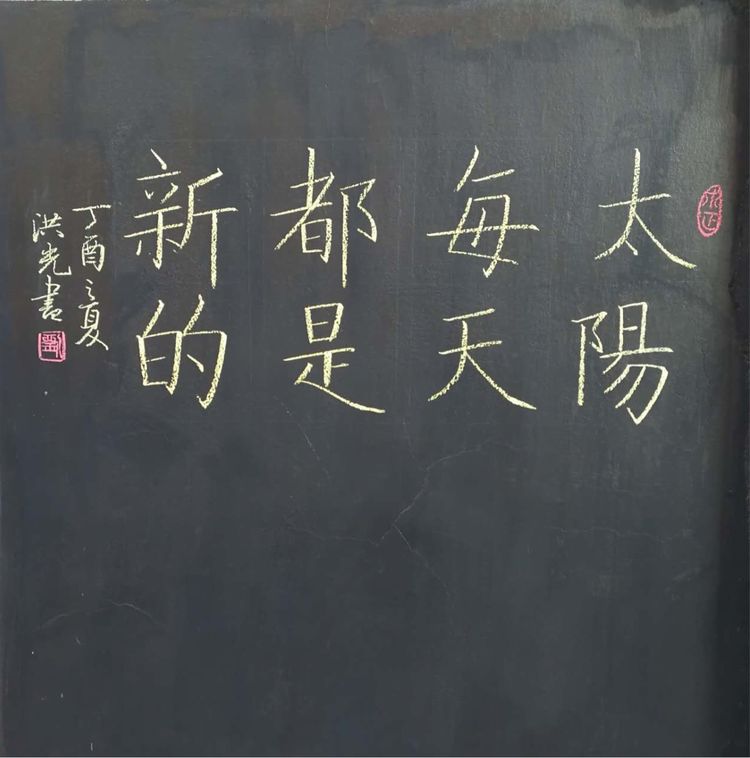 太陽
每天
都是
新的
丁酉之夏
洪光書